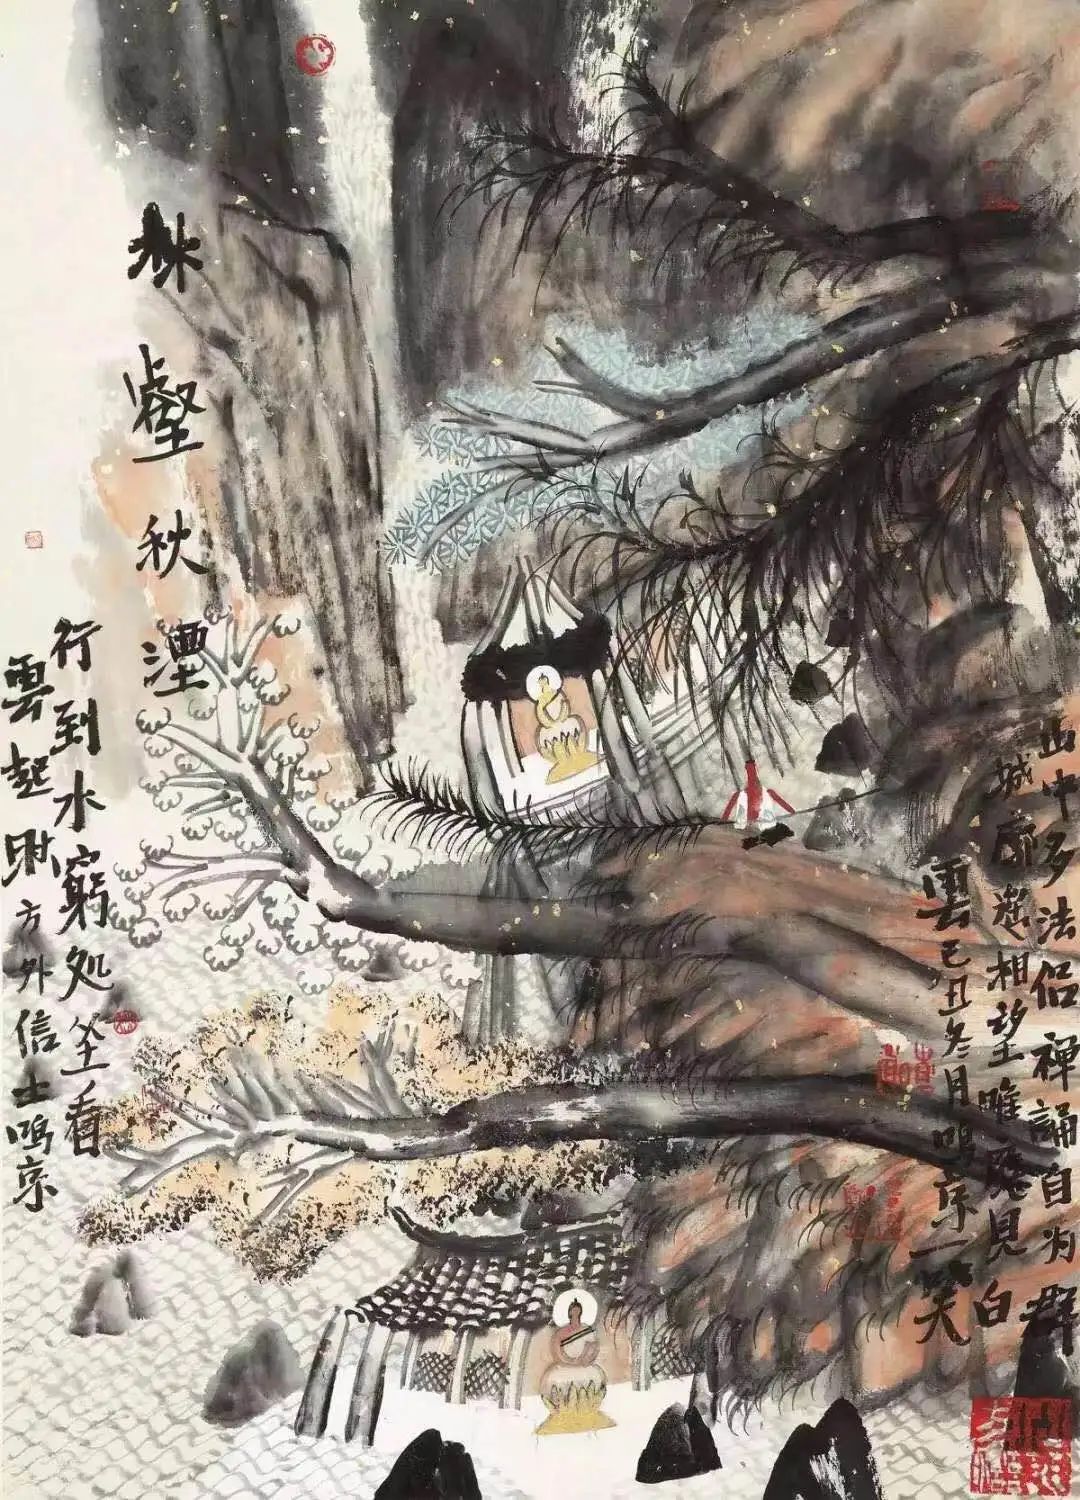 林壑秋湮
行到水窮処坐看
雲起时 方外信士鸣京
山中多法侣禅誦自为群
城郭遥相望唯應見白
雲己丑冬月鸣京一笑